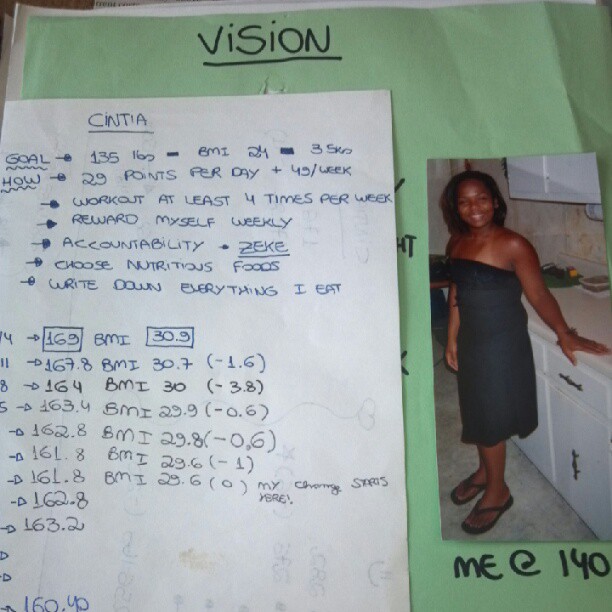 VISION
CINTIA
GOAL → 135 lbs - BMI 24 -
HOW → 29 POINTS PER DAY + 49/WEEK
→ WORKOUT AT LEAST 4 TIMES PER WEEK
→ REWARD MYSELF WEEKLY
→ ACCOUNTABILITY • ZEKE
→ CHOOSE NUTRITIOUS FOODS
→ WRITE DOWN EVERYTHING I EAT
/4 → 169 BMI 30.9
11 → 167.8 BMI 30.7 (-1.6)
8 → 164 BMI 30 (-3.8)
5 → 163.4 BMI 29.9 (-0.6)
→ 162.8 BMI 29.8 (-0,6)
→ 161.8 BMI 29.6 (-1)
→ 161.8 BMI 29.6 (0) MY change STARTS
→ 162.8
→ 163.2
→ 160.40
HT
ME @ 140